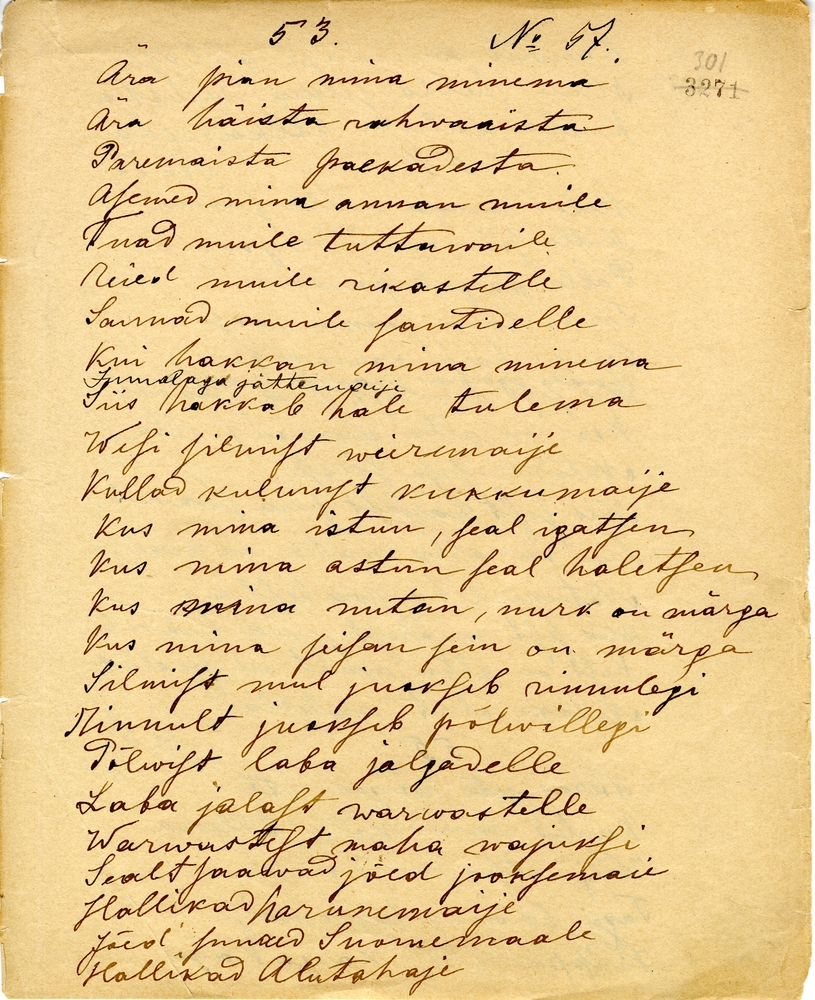 53. № 57.
301
3271
Ära pian mina minema
Ära häista rahwaaista
Paremaista paekadesta
Asemed mina annan muile
Tuad muile tuttawaile
Reied muile rikastelle
Saunad muile santidelle
Kui hakkan mina minema
Jumalaga jättemaije
Siis hakkab hale tulema
Wesi silmist weeremaije
Kullad kulmust kukkumaije
Kus mina istun, seal igatsen
Kus mina astun seal haletsen
Kus mina nutan, nurk on märga
Kus mina seisan sein on märga
Silmist mul jookseb rinnulegi
Rinnult jookseb põlwillegi
Põlwist laba jalgadelle
Laba jalast warwastelle
Warwastest maha wajuksi
Sealt saawad jõed jooksemaie
Hallikad harunemaije
Jõed suured Suomemaale
Hallikad Alutahaje